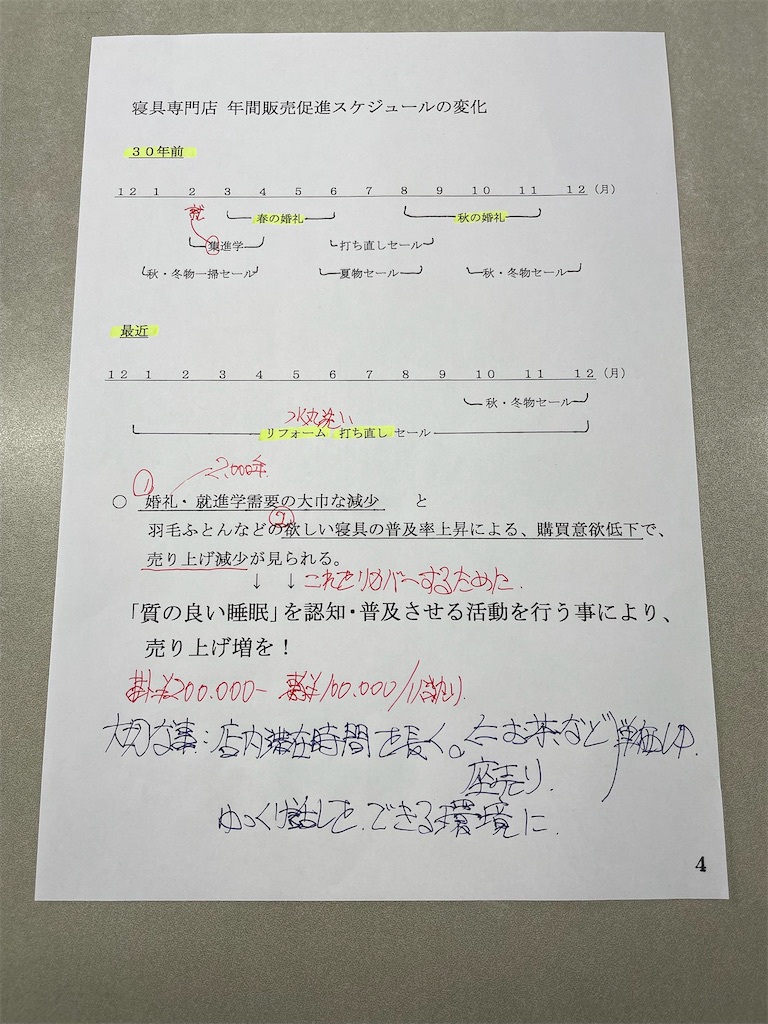 寝具専門店 年間販売促進スケジュールの変化
30年前
12 1 2 3 4 5 6 7 8 9 10 11 12 (月)
就 春の婚礼 秋の婚礼
集進学 打ち直しセール
秋・冬物一掃セール 夏物セール 秋・冬物セール
最近
12 1 2 3 4 5 6 7 8 9 10 11 12 (月)
秋・冬物セール
水丸洗い
リフォーム 打ち直し セール
① 2,000年
○ 婚礼・就進学需要の大巾な減少 と
②
羽毛ふとんなどの欲しい寝具の普及率上昇による、購買意欲低下で、
売り上げ減少が見られる。
↓ ↓ これをリカバーするために
「質の良い睡眠」を認知・普及させる活動を行う事により、
売り上げ増を！
掛け¥200.000- 敷¥100.000/
大切な事:店内滞在時間を長く。⇐お茶など 単価UP.
座売り.
ゆっくり話しをできる環境に.
4